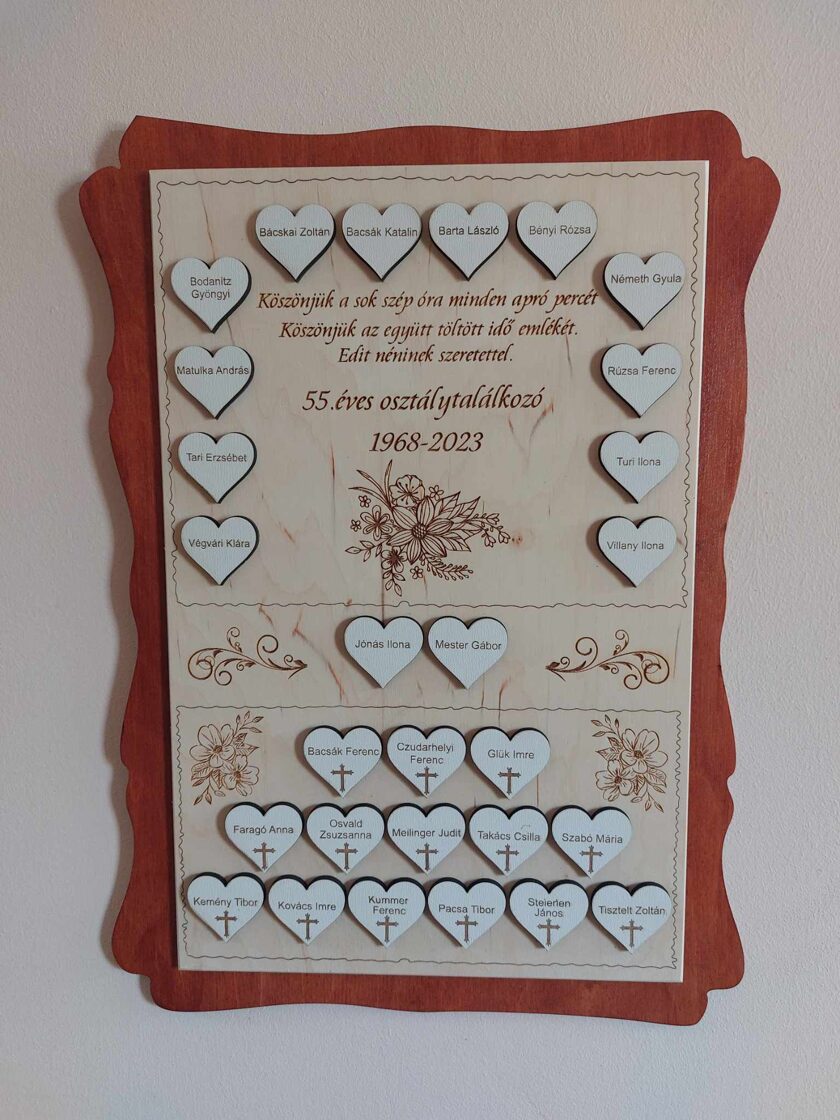 Bácskai Zoltán
Bacsák Katalin
Barta László
Bényi Rózsa
Bodanitz
Gyöngyi
Németh Gyula
Köszönjük a sok szép óra minden apró percét
Köszönjük az együtt töltött idő emlékét.
Edit néninek szeretettel.
Matulka András
Rúzsa Ferenc
55.éves osztálytalálkozó
1968-2023
Tari Erzsébet
Turi Ilona
Végvári Klára
Villany Ilona
Jónás Ilona
Mester Gábor
Bacsák Ferenc
Czudarhelyi
Ferenc
Glük Imre
Faragó Anna
Osvald
Zsuzsanna
Meilinger Judit
Takács Csilla
Szabó Mária
Kemény Tibor
Kovács Imre
Kummer
Ferenc
Pacsa Tibor
Steierlen
János
Tisztelt Zoltán